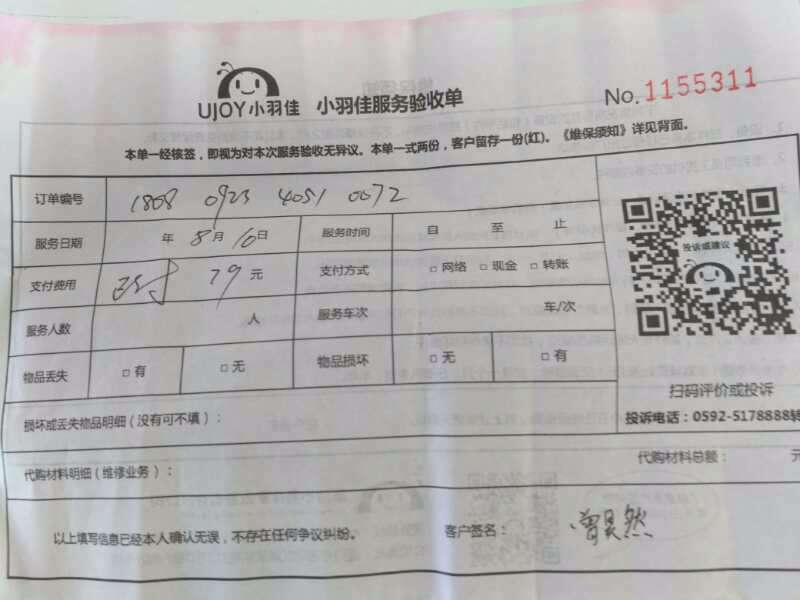 UJOY小羽佳 小羽佳服务验收单 No. 1155311
本单一经核签，即视为对本次服务验收无异议。本单一式两份，客户留存一份(红)。《维保须知》详见背面。
订单编号 1808 0923 4051 0072
服务日期 年 8月10日 服务时间 自 至 止
支付费用 79元 支付方式 □网络 □现金 □转账
服务人数 人 服务车次 车/次
物品丢失 □有 □无 物品损坏 □无 □有
投诉或建议
扫码评价或投诉
投诉电话：0592-5178888转
损坏或丢失物品明细（没有可不填）：
代购材料明细（维修业务）： 代购材料总额： 元
以上填写信息已经本人确认无误，不存在任何争议纠纷。 客户签名： 曾昊然